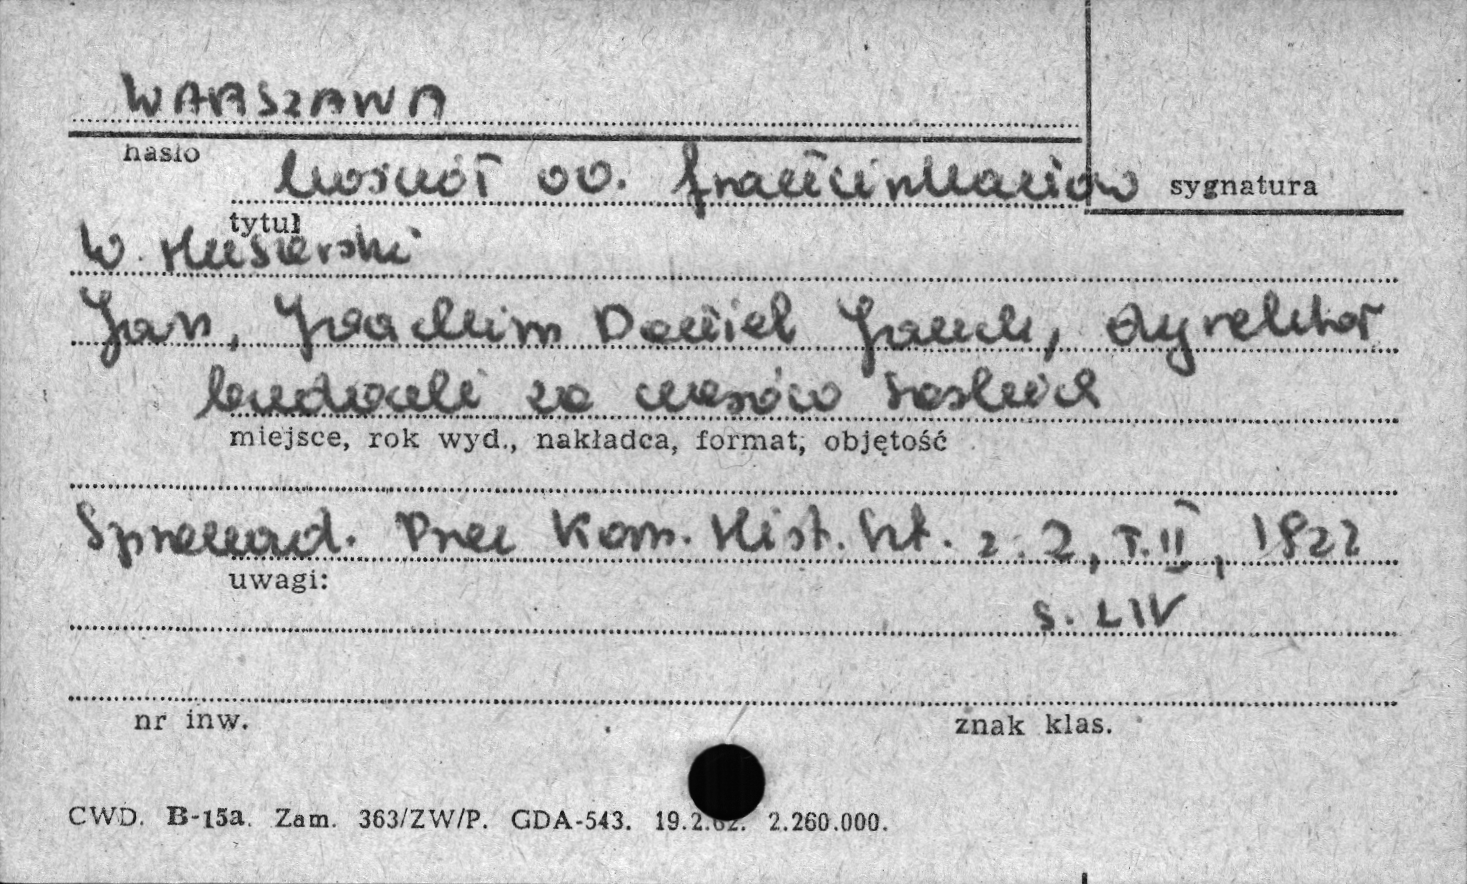 WARSZAWA
hasło
kościół oo. franciszkanów
sygnatura
tytuł
W. Husarski
Jan, Joachim Daniel Jauch, dyrektor
budowli za czasów saskich
miejsce, rok wyd., nakładca, format, objętość
Sprawozd. Prac Kom. Hist. Szt. z. 2, T. II, 1922
uwagi:
s. LIV
nr inw.
znak klas.
CWD. B-15a. Zam. 363/ZW/P. GDA-543. 19.2.62. 2.260.000.